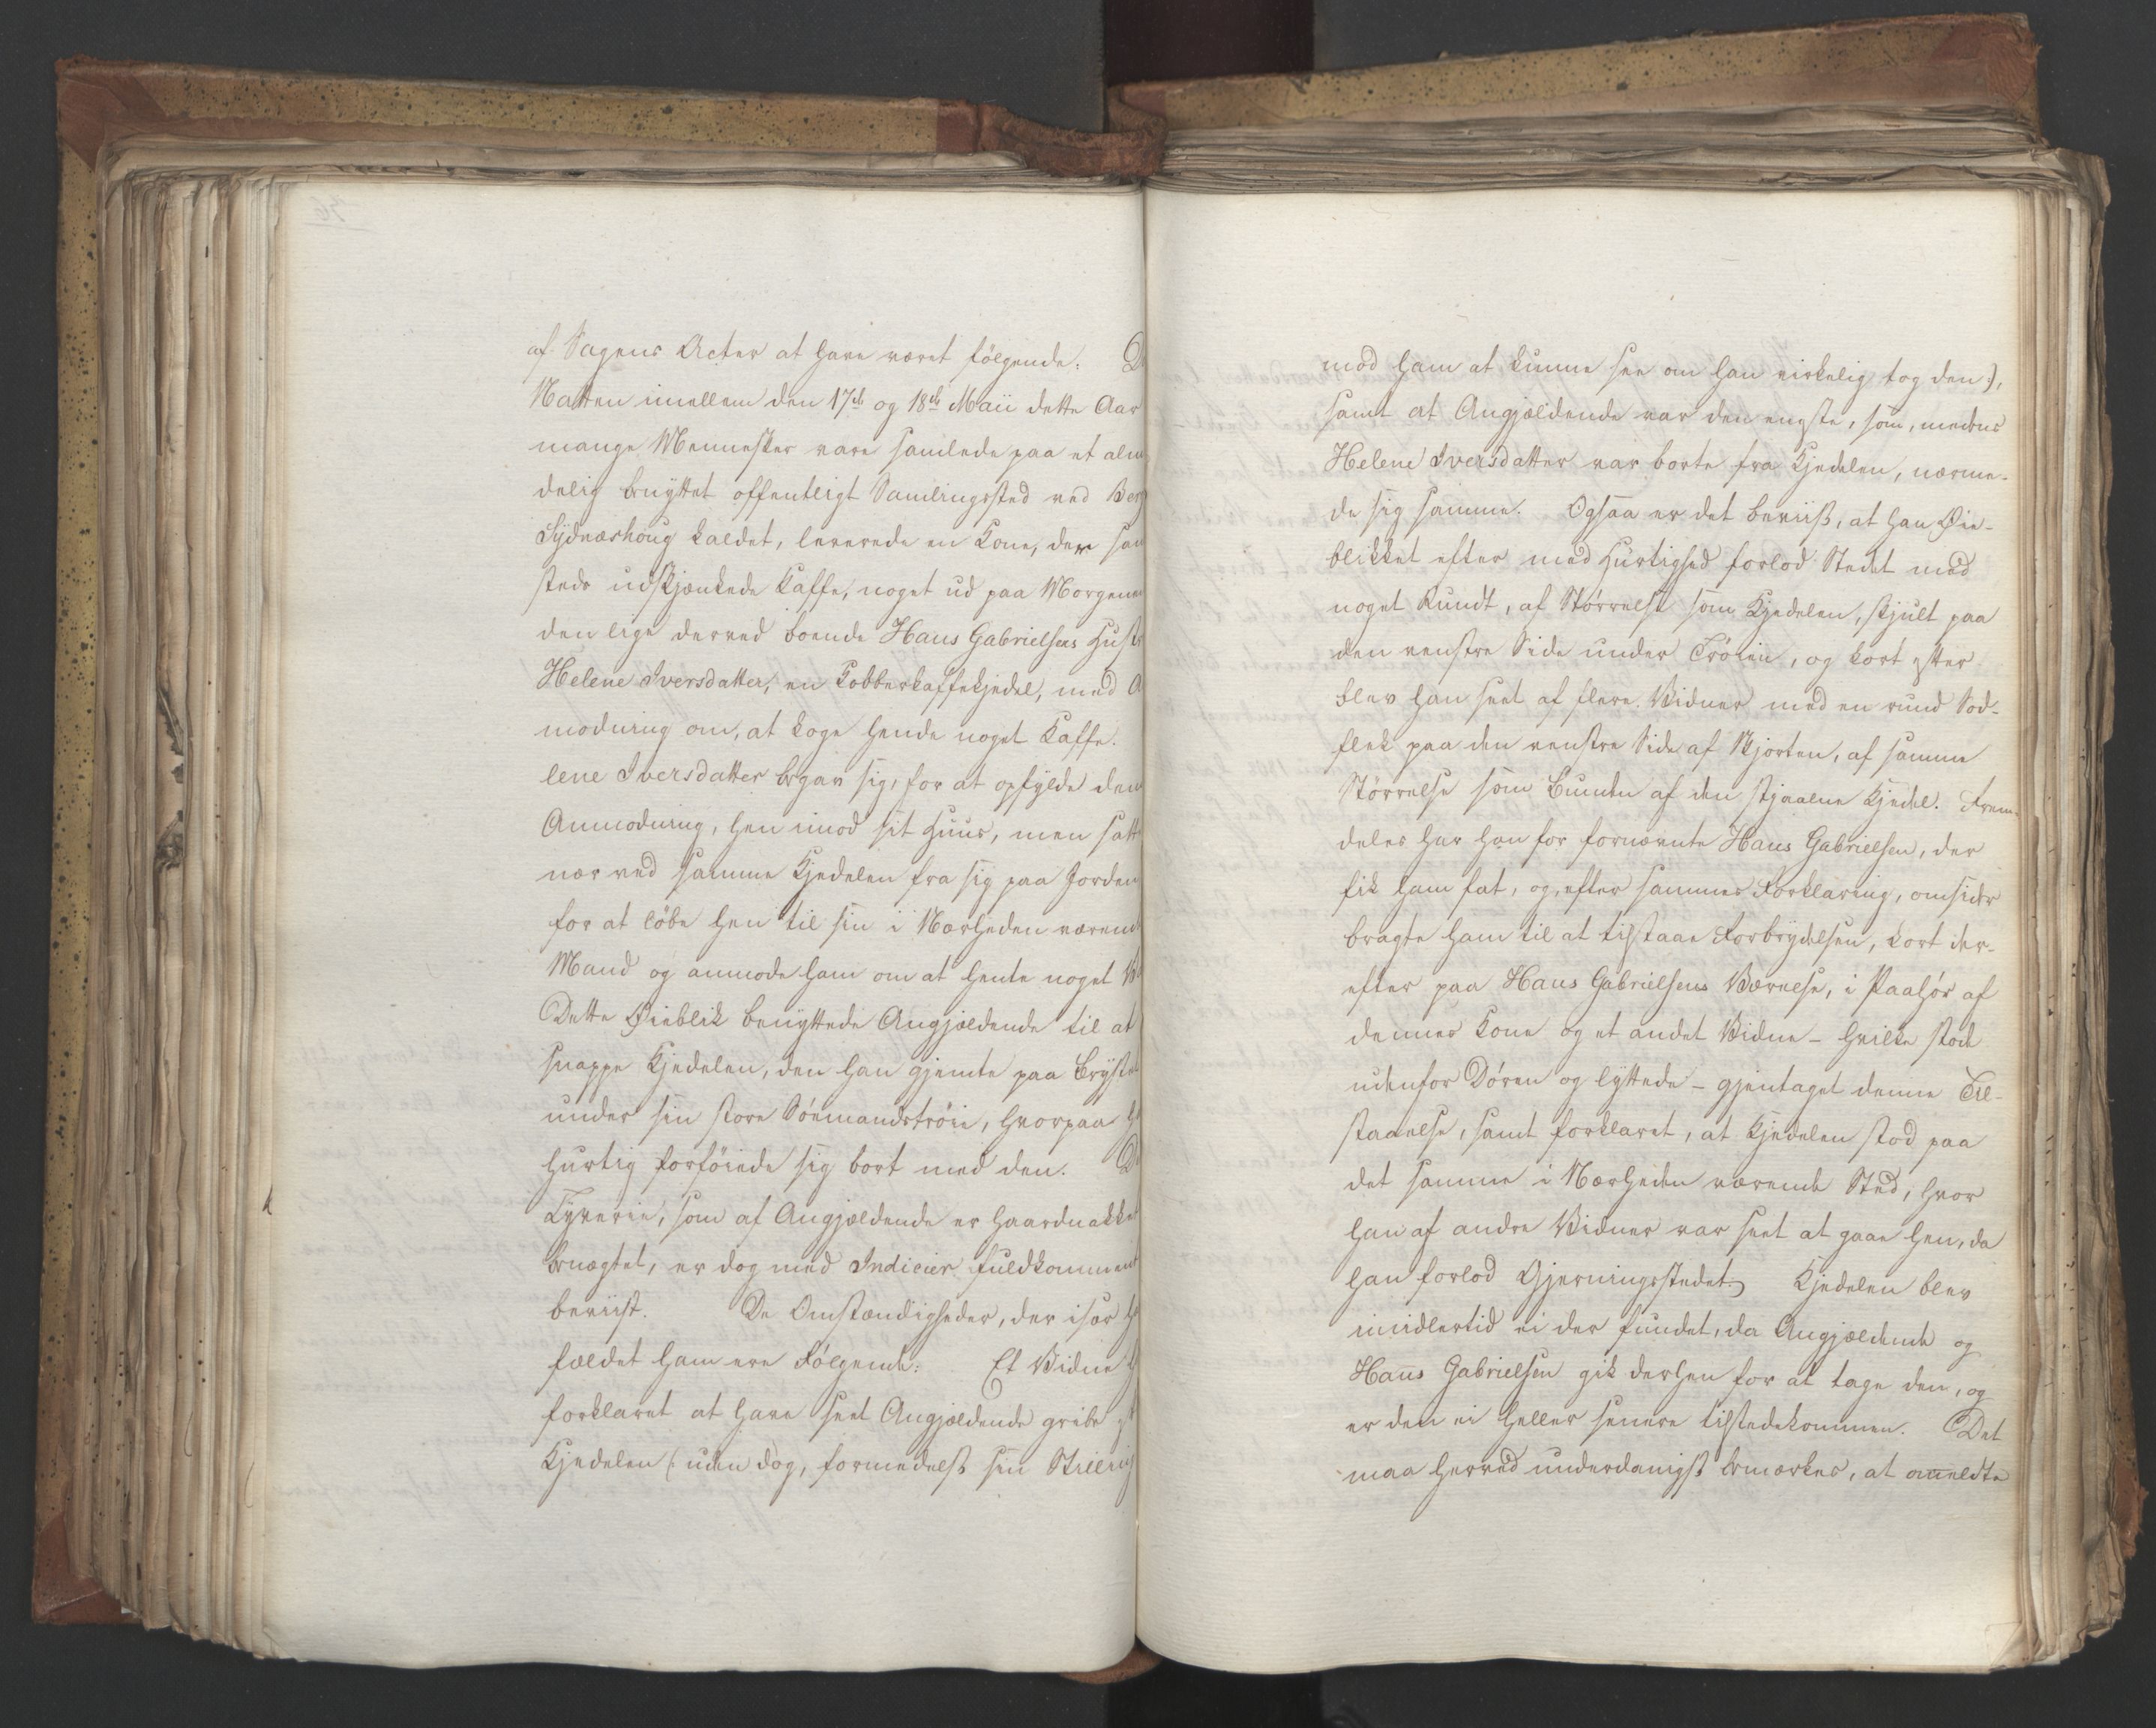 af Sagens Acter at have været følgende:
Natten imellem den 17de og 18de Maii dette Aar
mange Mennesker vare samlede paa et alm
delig benyttet offentligt Samlingssted ved Ber
Sydnæshoug kaldet, leverede en Kone, der sam
steds udskjænkede Kaffe, noget ud paa Morgenen
den lige derved boende Hans Gabrielsens Hust
Helene Iversdatter, en Kobberkaffekjedel, med A
modning om, at koge hende noget Kaffe.
lene Iversdatter begav sig, for at opfylde den
Anmodning, hen imod sit Huus, men satt
nær ved samme Kjedelen fra sig paa Jorden
for at løbe hen til sin i Nærheden værend
Mand og anmode ham om at hente noget
Dette Øieblik benyttede Angjældende til at
snappe Kjedelen, den han gjemte paa Bryste
under sin store Sømandstrøie, hvorpaa
hurtig forføiede sig bort med den.
Tyverie, som af Angjældende er haardnakket
benægtet, er dog med Indicier fuldkomment
beviist. De Omstændigheder, der især
fældet ham ere Følgende: Et Vidne
forklaret at have seet Angjældende gribe
Kjedelen (: uden dog, formedelst sin Stilling
mod ham at kunne see om han virkelig tog den :),
samt at Angjældende var den eneste, som, medens
Helene Iversdatter var borte fra Kjedelen, nærme-
de sig samme. Ogsaa er det beviist, at han Øie-
blikket efter med Hurtighed forlod Stedet med
noget Rundt, af Størrelse som Kjedelen, skjult paa
den venstre Side under Trøien, og kort efter
blev han seet af flere Vidner med en rund Sod-
flek paa den venstre Side af Skjorten, af samme
Størrelse som Bunden af den stjaalne Kjedel. Frem-
deles har han for fornævnte Hans Gabrielsen, der
fik ham fat, og, efter sammes Forklaring, omsider
bragte ham til at tilstaae Forbrydelsen, kort der-
efter paa Hans Gabrielsens Værelse, i Paahør af
dennes Kone og et andet Vidne – hvilke stode
udenfor Døren og lyttede – gjentaget denne Til-
staaelse, samt forklaret, at Kjedelen stod paa
det samme i Nærheden værende Sted, hvor
han af andre Vidner var seet at gaae hen, da
han forlod Gjerningsstedet. Kjedelen blev
imidlertid ei der fundet, da Angjældende og
Hans Gabrielsen gik derhen for at tage den, og
er den ei heller senere tilstedekommen. Det
maa herved underdanigst bemærkes, at anmeldte